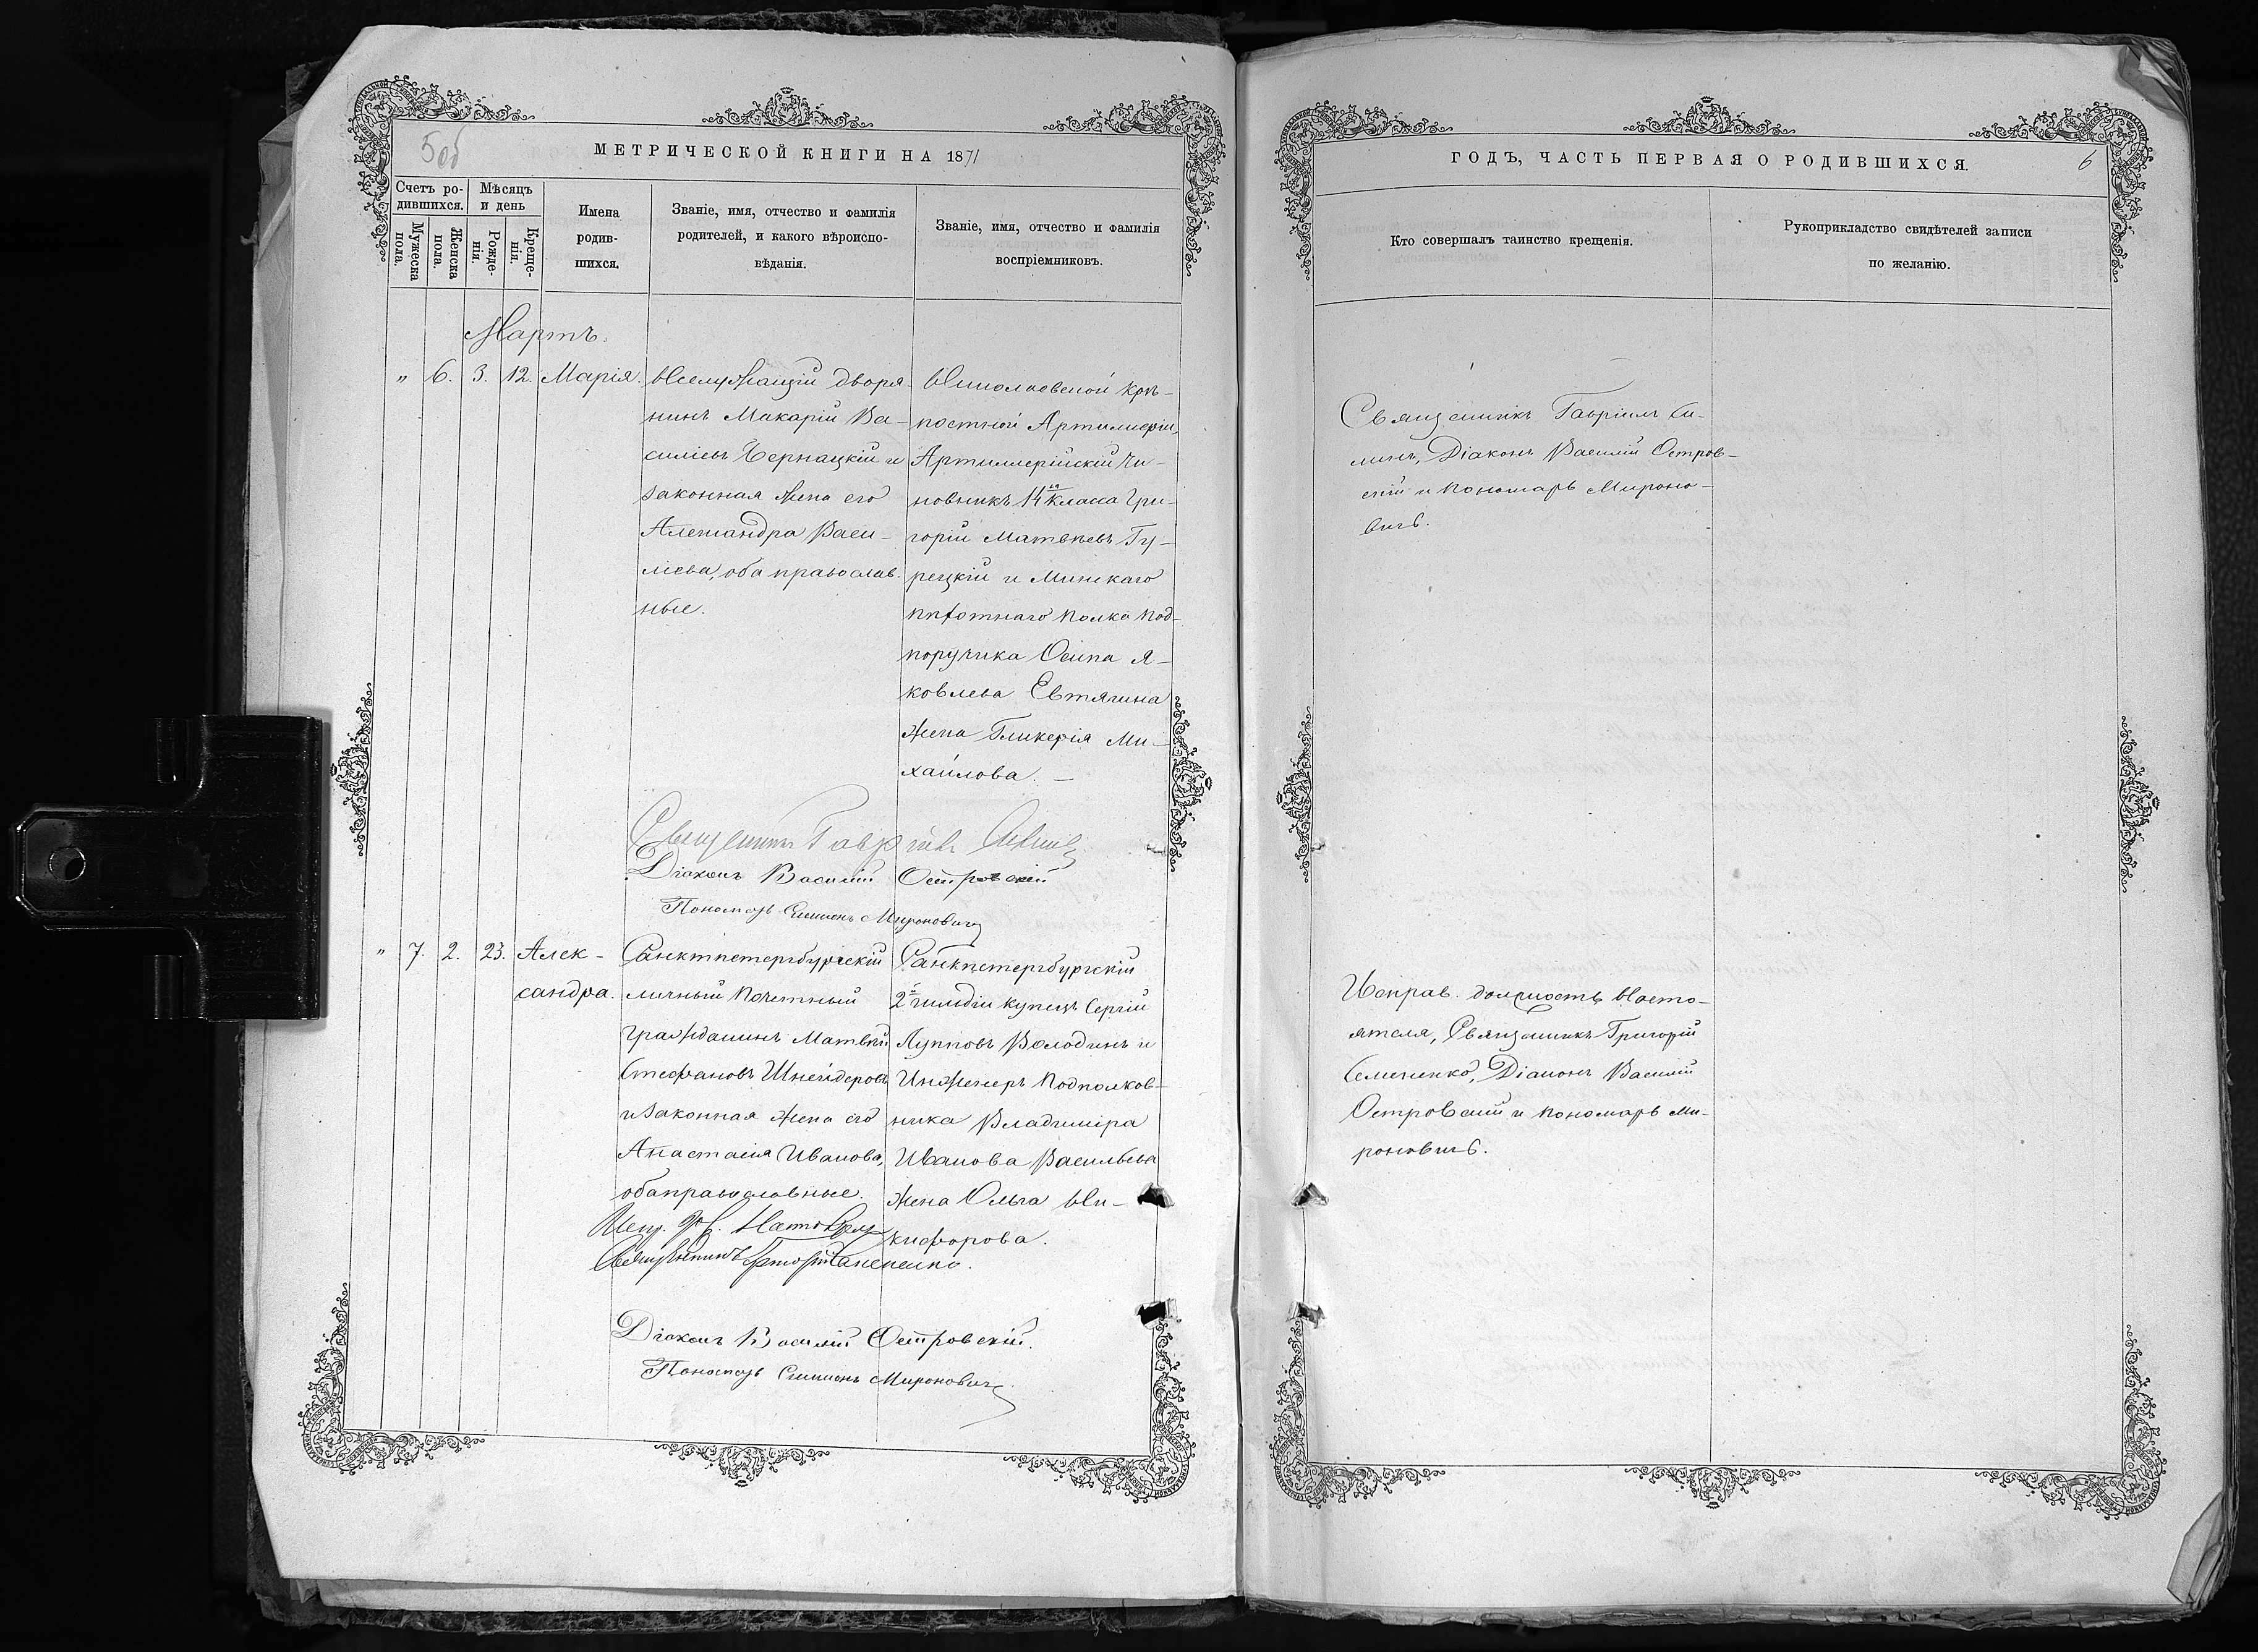 5об
МЕТРИЧЕСКОЙ КНИГИ НА 1871
Счетъ ро-
дившихся.
Мѣсяцъ
и день
Мужеска
пола.
Женска
пола.
Рожде-
нія.
Креще-
нія.
Имена
родив-
шихся.
Званіе, имя, отчество и фамилія
родителей, и какого вѣроиспо-
вѣданія.
Званіе, имя, отчество и фамилія
воспріемниковъ.
Мартъ.
" 6. 3. 12. Марія.
Неслужащій дворя-
нинъ Макарій Ва-
силіевъ Чернацкій и
законная жена его
Александра Васи-
ліева, оба православ-
ные.
Николаевской крѣ-
постной Артиллеріи,
Артиллерійскій Чи-
новникъ 14го класса Гри-
горій Матвѣевъ Гу-
рецкій и Минскаго
пѣхотнаго полка Под-
поручика Осипа Я-
ковлева Евтягина
жена Гликерія Ми-
хайлова. —
Священникъ Гавріилъ
Діаконъ Василій Островскій
Пономарь Симеонъ Мироновичъ
" 7. 2. 23. Алек-
сандра.
Санктпетербургскій
личный почетный
гражданинъ Матвѣй
Стефановъ Шнейдеровъ
и законная жена его
Анастасія Иванова,
оба православные.
Санкпетербургскій
2й гильдіи купецъ Сергій
Лупповъ Володинъ и
Инженеръ Подполков-
ника Владиміра
Иванова Васильева
жена Ольга Ни-
кифорова.
Испр. д. Настоятеля
Священникъ Григорій Семененко.
Діаконъ Василій Островскій.
Пономарь Симеонъ Мироновичъ
ГОДЪ, ЧАСТЬ ПЕРВАЯ О РОДИВШИХСЯ.
6
Кто совершалъ таинство крещенія.
Рукоприкладство свидѣтелей записи
по желанію.
Священникъ Гавріилъ Си-
Діаконъ Василій Остров-
скій и пономарь Мироно-
вичъ.
Исправ. должность Насто-
ятеля, Священникъ Григорій
Семененко, Діаконъ Василій
Островскій и пономарь Ми-
роновичъ.